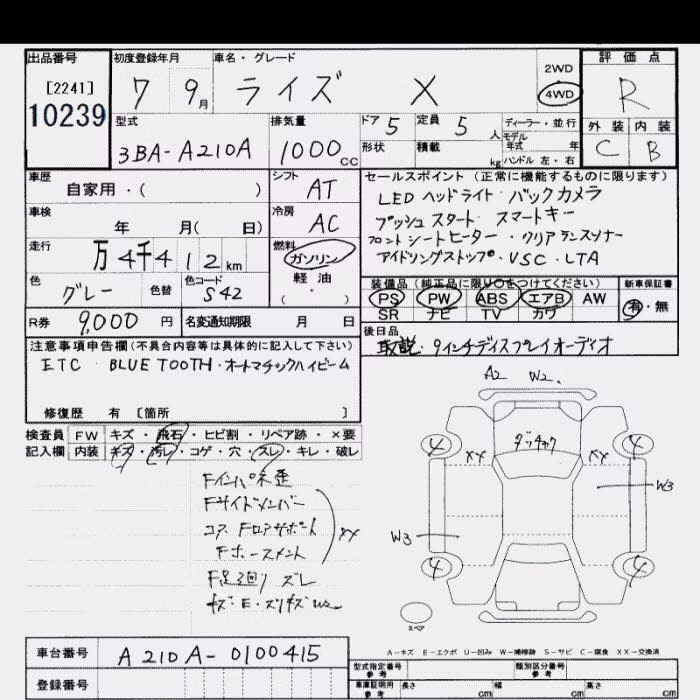 出品番号 初度登録年月 車名・グレード 評価点
[2241] 7 9月 ライズ X 2WD 4WD R
10239
型式 排気量 ドア 5 定員 5人 ディーラー・並行 外装 内装
3BA-A210A 1000cc 形状 積載 kg モデル年式 年 ハンドル 左・右 C B
車歴 シフト セールスポイント(正常に機能するものに限ります)
自家用・( ) AT LED ヘッドライト・バックカメラ
車検 冷房 プッシュスタート・スマートキー
年 月( 日) AC フロントシートヒーター・クリアランスソナー
走行 燃料 アイドリングストップ・VSC・LTA
万4千412km ガソリン
軽油
( ・ )
色 色替 色コード 装備品(純正品に限り○をつけてください) 新車保証書
グレー S42 PS PW ABS エアB AW 有・無
SR ナビ TV カワ
R券 9,000円 名変通知期限 月 日 後日品
取説・9インチディスプレイオーディオ
注意事項申告欄(不具合内容等は具体的に記入して下さい)
ETC・BLUETOOTH・オートマチックハイビーム
修復歴 有 [箇所 ]
A2 W2.
検査員 FW キズ・飛石・ヒビ割・リペア跡・×要
記入欄 内装 キズ・汚レ・コゲ・穴・スレ・キレ・破レ
4 4
XX XX
Fインパネ歪
Fサイドメンバー
コアFロアサポート XX
W3
W3
F足廻リ ズレ
4 4
スペア
A-キズ E-エクボ U-凹み W-補修跡 S-サビ C-腐食 XX-交換済
車台番号 A210A-0100415
型式指定番号 参考 類別区分番号 参考
登録番号 車庫証明用 参考 長さ cm 幅 cm 高さ cm